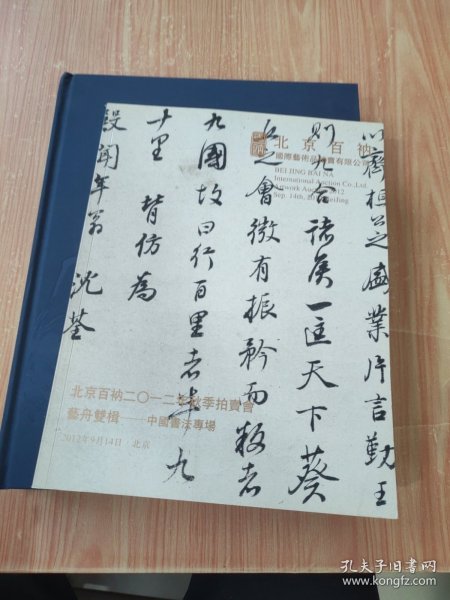 以齊桓公之盛業片言勤王
則九合諸侯一匡天下葵
丘之會微有振矜而叛者
九國故曰行百里者半九
十里 仿為
年翁 沈荃
北京百衲
國際藝術品拍賣有限公司
BEI JING BAI NA
International Auction Co.,Ltd
Artwork Auction 2012
Sep. 14th, 2012 Beijing
北京百衲二〇一二年秋季拍賣會
藝舟雙楫——中國書法專場
2012年9月14日 北京
孔夫子旧书网
www.kongfz.com